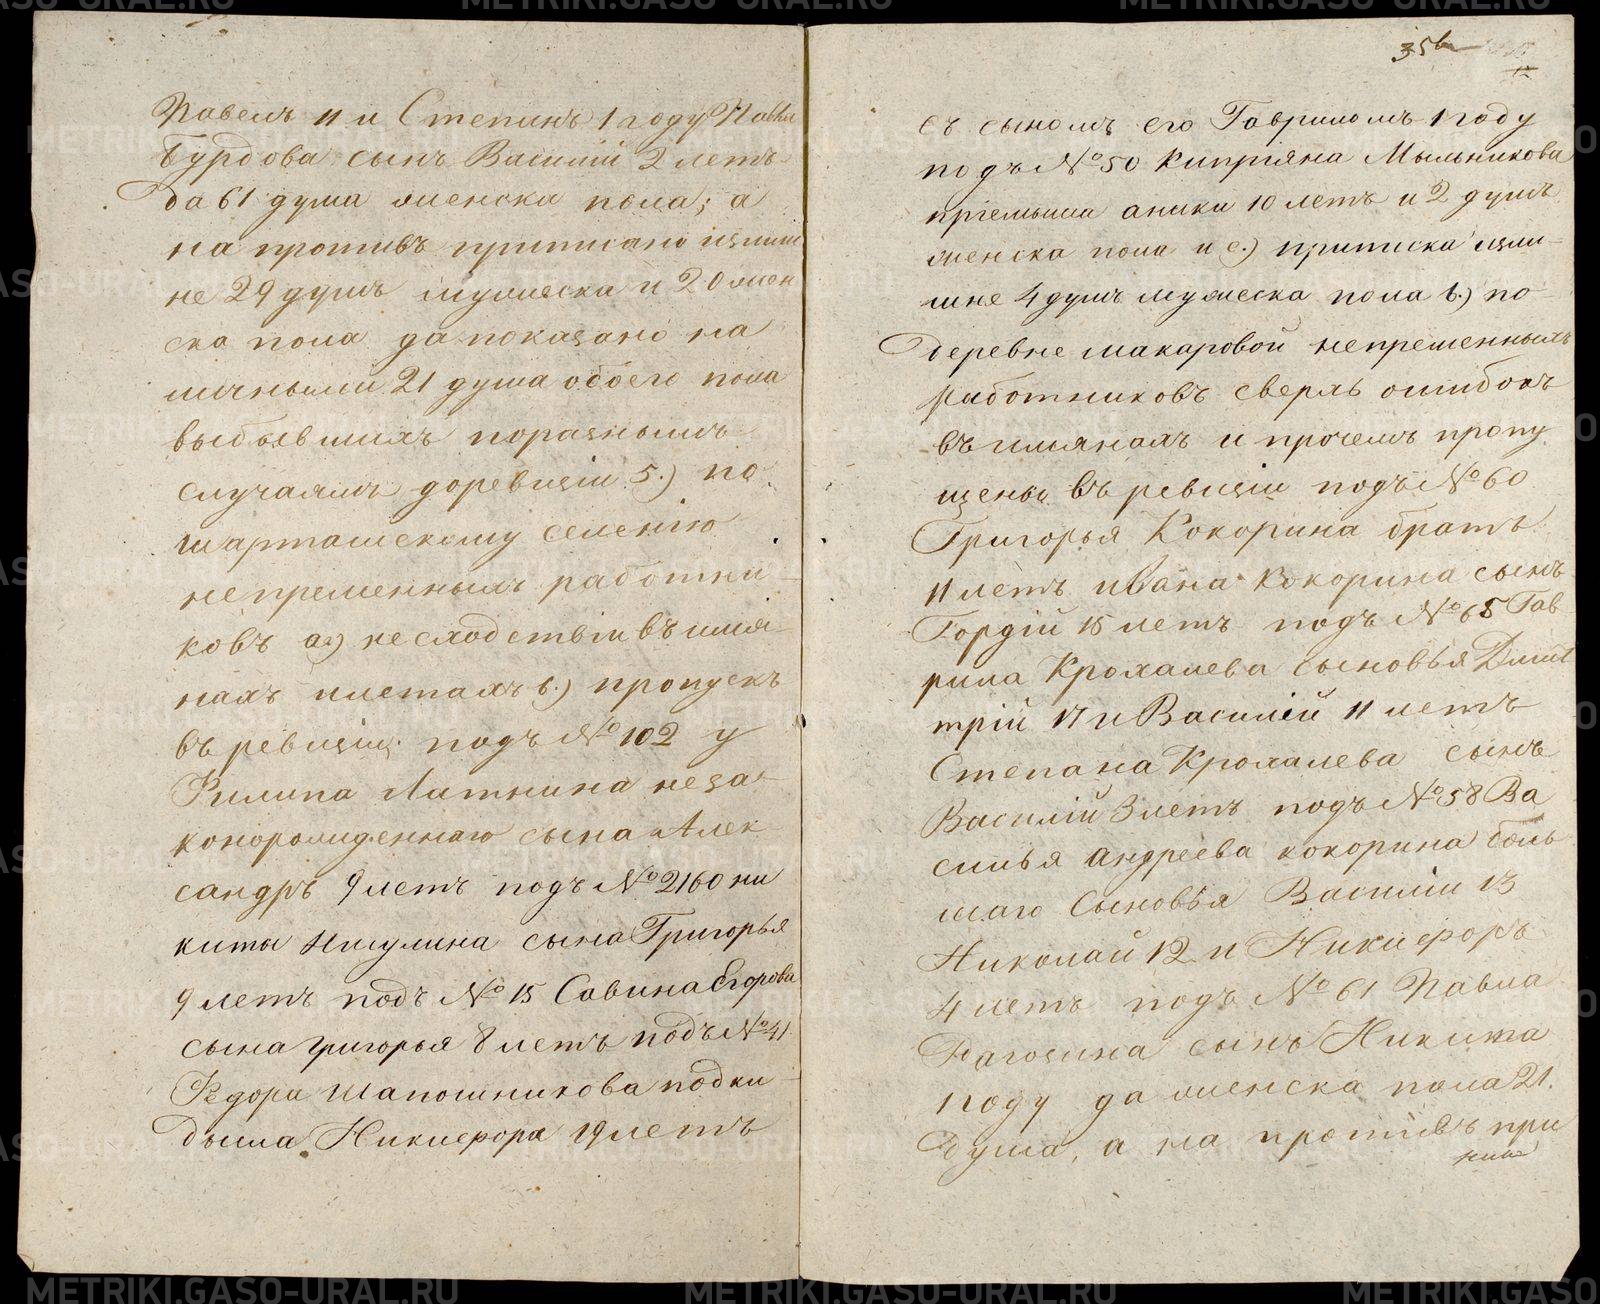 Павелъ 11 и Степанъ 1 году Павла
Бурдова сынъ Василій 2 летъ
да 61 душа женска пола; а
на противъ приписано излиш
не 29 душъ мужеска и 20 жен
ска пола да показано на
личными 21 душа обоего пола
выбывшихъ поразнымъ
случаямъ доревизіи 5.) по
шарташскому селенію
непременныхъ работни
ковъ а.) несходствіи въ имя
нахъ илетахъ в.) пропускъ
въ ревизіи подъ №102 у
Филипа Латнина неза
коннорожденнаго сына Алек
сандръ 9 летъ подъ №2160 ни
киты Нигулина сына Григорья
9 летъ подъ № 15 Савина Егорова
сына григорья 8 летъ подъ №41
Федора Шапошникова подки
дыша Никифора 19 летъ
35
съ сыномъ его Гавриломъ 1 году
подъ №50 Кипріяна Мыльникова
пріемыша аники 10 летъ и 2 душъ
женска пола и с.) приписка изли
шне 4 душъ мужеска пола в.) по
деревне макаровой непременныхъ
работниковъ сверхъ ошибокъ
въ имянахъ и прочемъ пропу
щены въ ревизіи подъ №60
Григорья Кокорина братъ
11 летъ ивана кокорина сынъ
Гордій 15 летъ подъ №65 Гав
рила Крохалева сыновья Дмит
трій 17 и Василій 11 летъ
Степана Крохалева сынъ
Василій 3 летъ подъ №58 Ва
силья андреева кокорина боль
шаго сыновья Василій 13
Николай 12 и Никифоръ
4 летъ подъ № 61 Павла
Рагозина сынъ Никита
1 году да женска пола 21.
душа, а на противъ при
писа